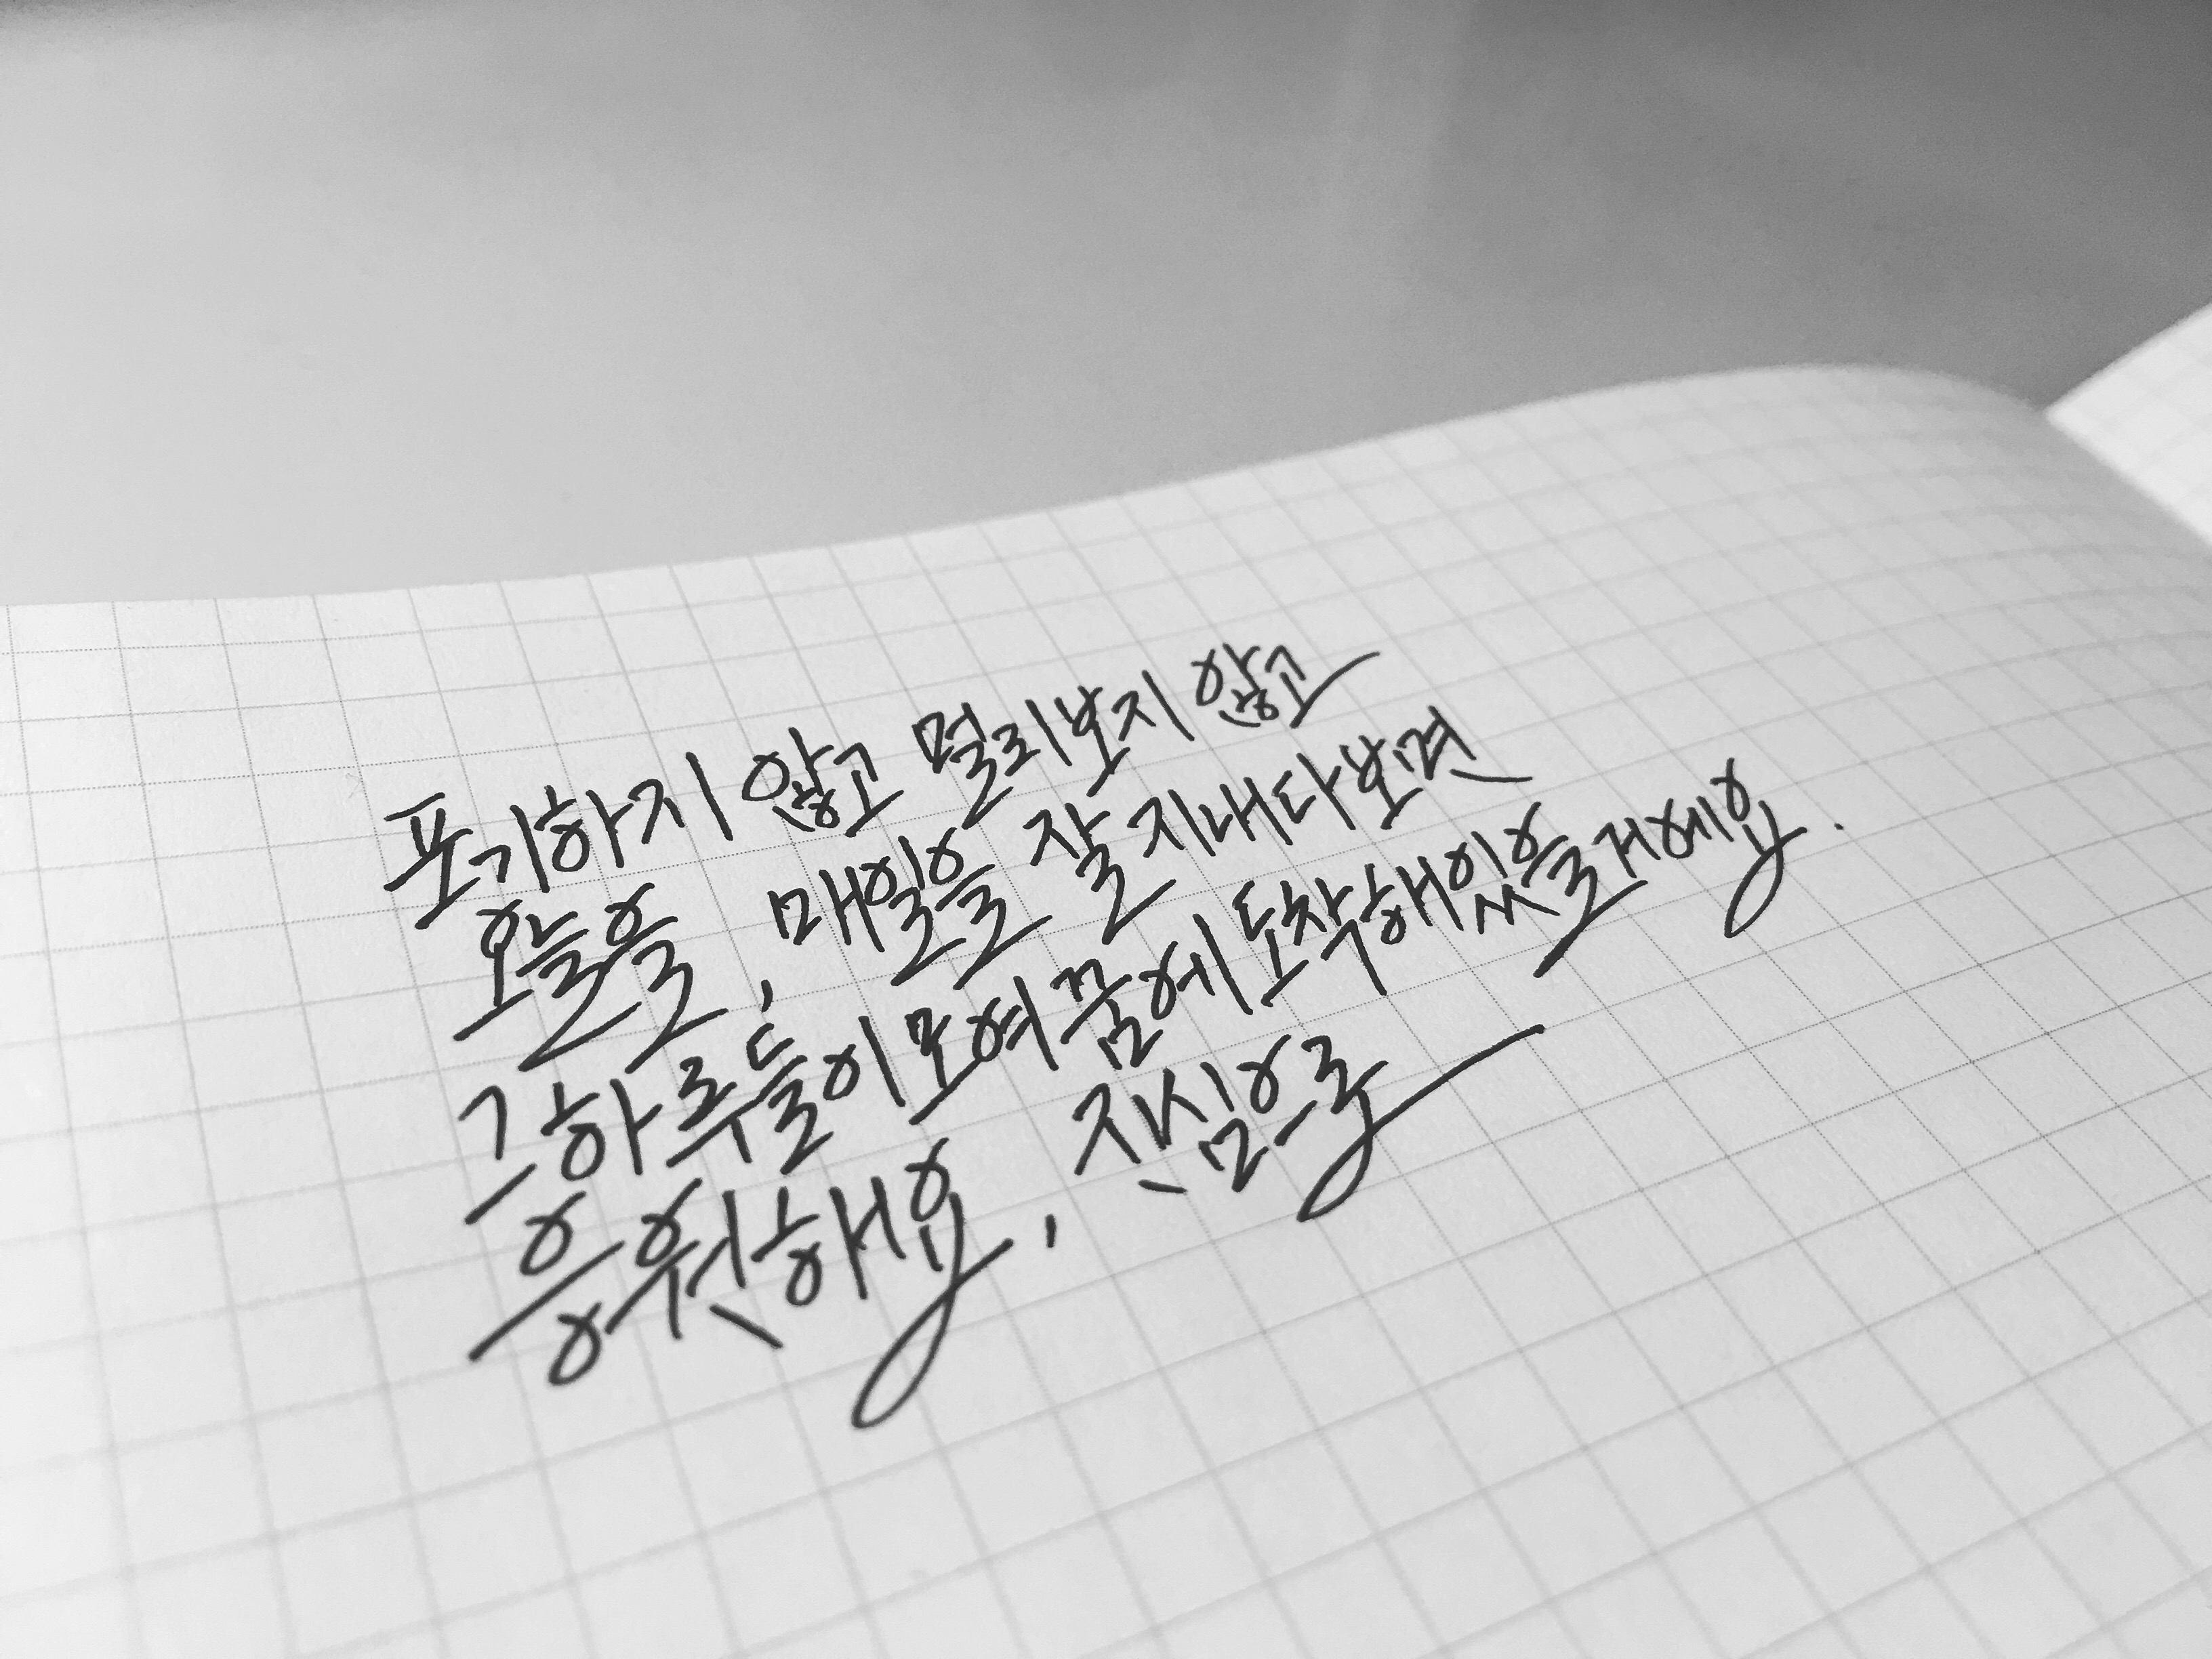 포기하지 않고 멀리보지 않고
오늘을, 매일을 잘 지내다보면
그 하루들이 모여 꿈에 도착해있을거예요.
응원해요, 진심으로